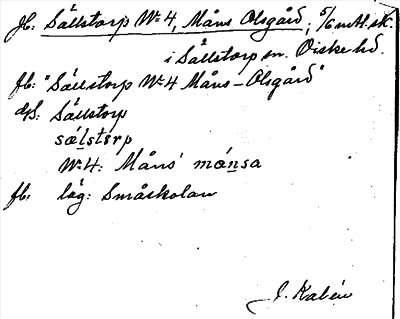 Jb: Sällstorp Nº 4, Måns Olsgård; 5/6 mtl. sk.
i Sällstorp sn. Viske hd.
fb: "Sällstorp Nº 4 Måns-Olsgård"
ds: Sällstorp
sǽlstɵrp
Nº 4: Måns' mánsa
fb: låg: Småskolan
J. Kalén